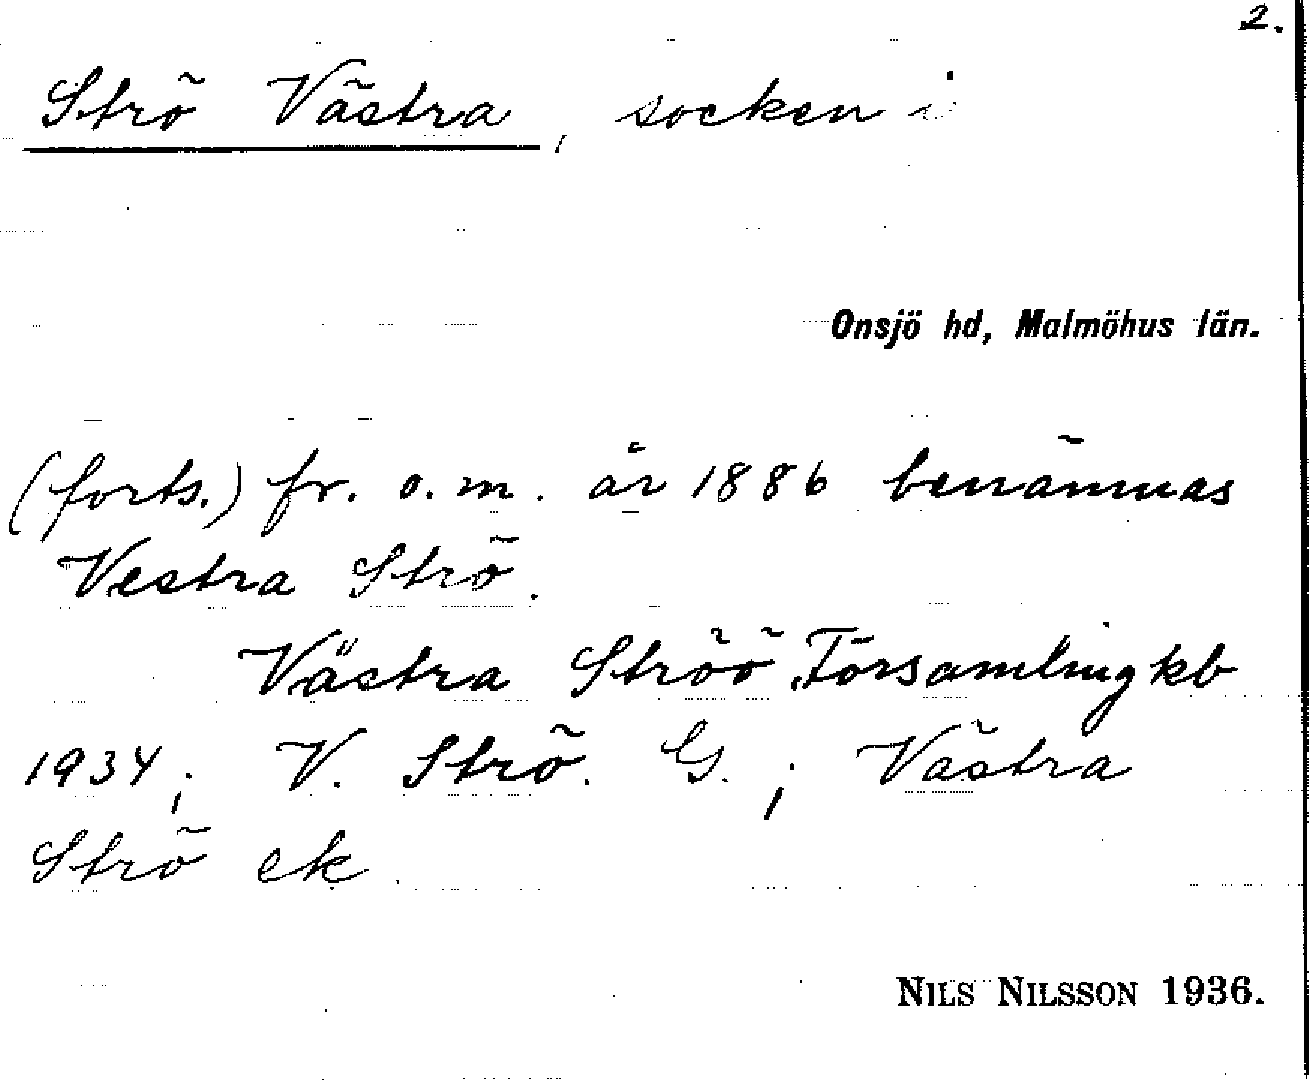 2.
Strö Västra, socken i
Onsjö hd, Malmöhus län.
(forts.) fr. o. m. år 1886 benämnas
Vestra Strö.
Västra Ströö Församlingkb
1934; V. Strö. G.; Västra
Strö ek.
NILS NILSSON 1936.